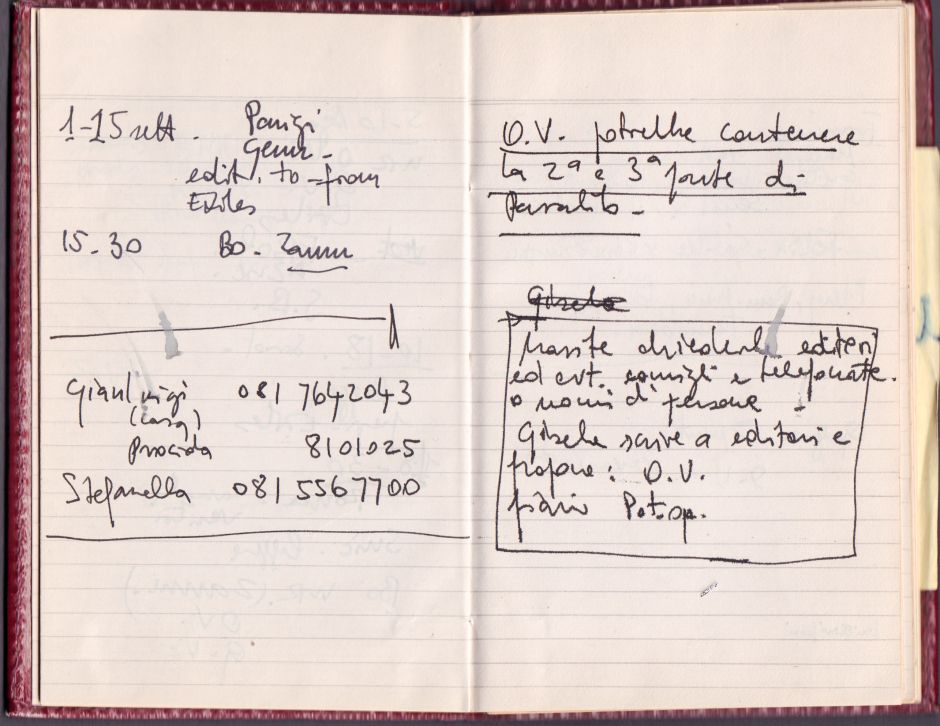 1-15 sett. Parigi
edit. to-from
Exiles
15.30 Bo. Zamm
Gianluigi 081 7642043
(casa)
Procida 8101025
Stefanella 081 5567700
O.V. potrebbe contenere
la 2ª e 3ª parte di
Paralito-
Gisele
editori
ed evt. consigli e telefonate.
o nomi di persone
Gisele scrive a editori e
propone: O.V.
Pot.op.